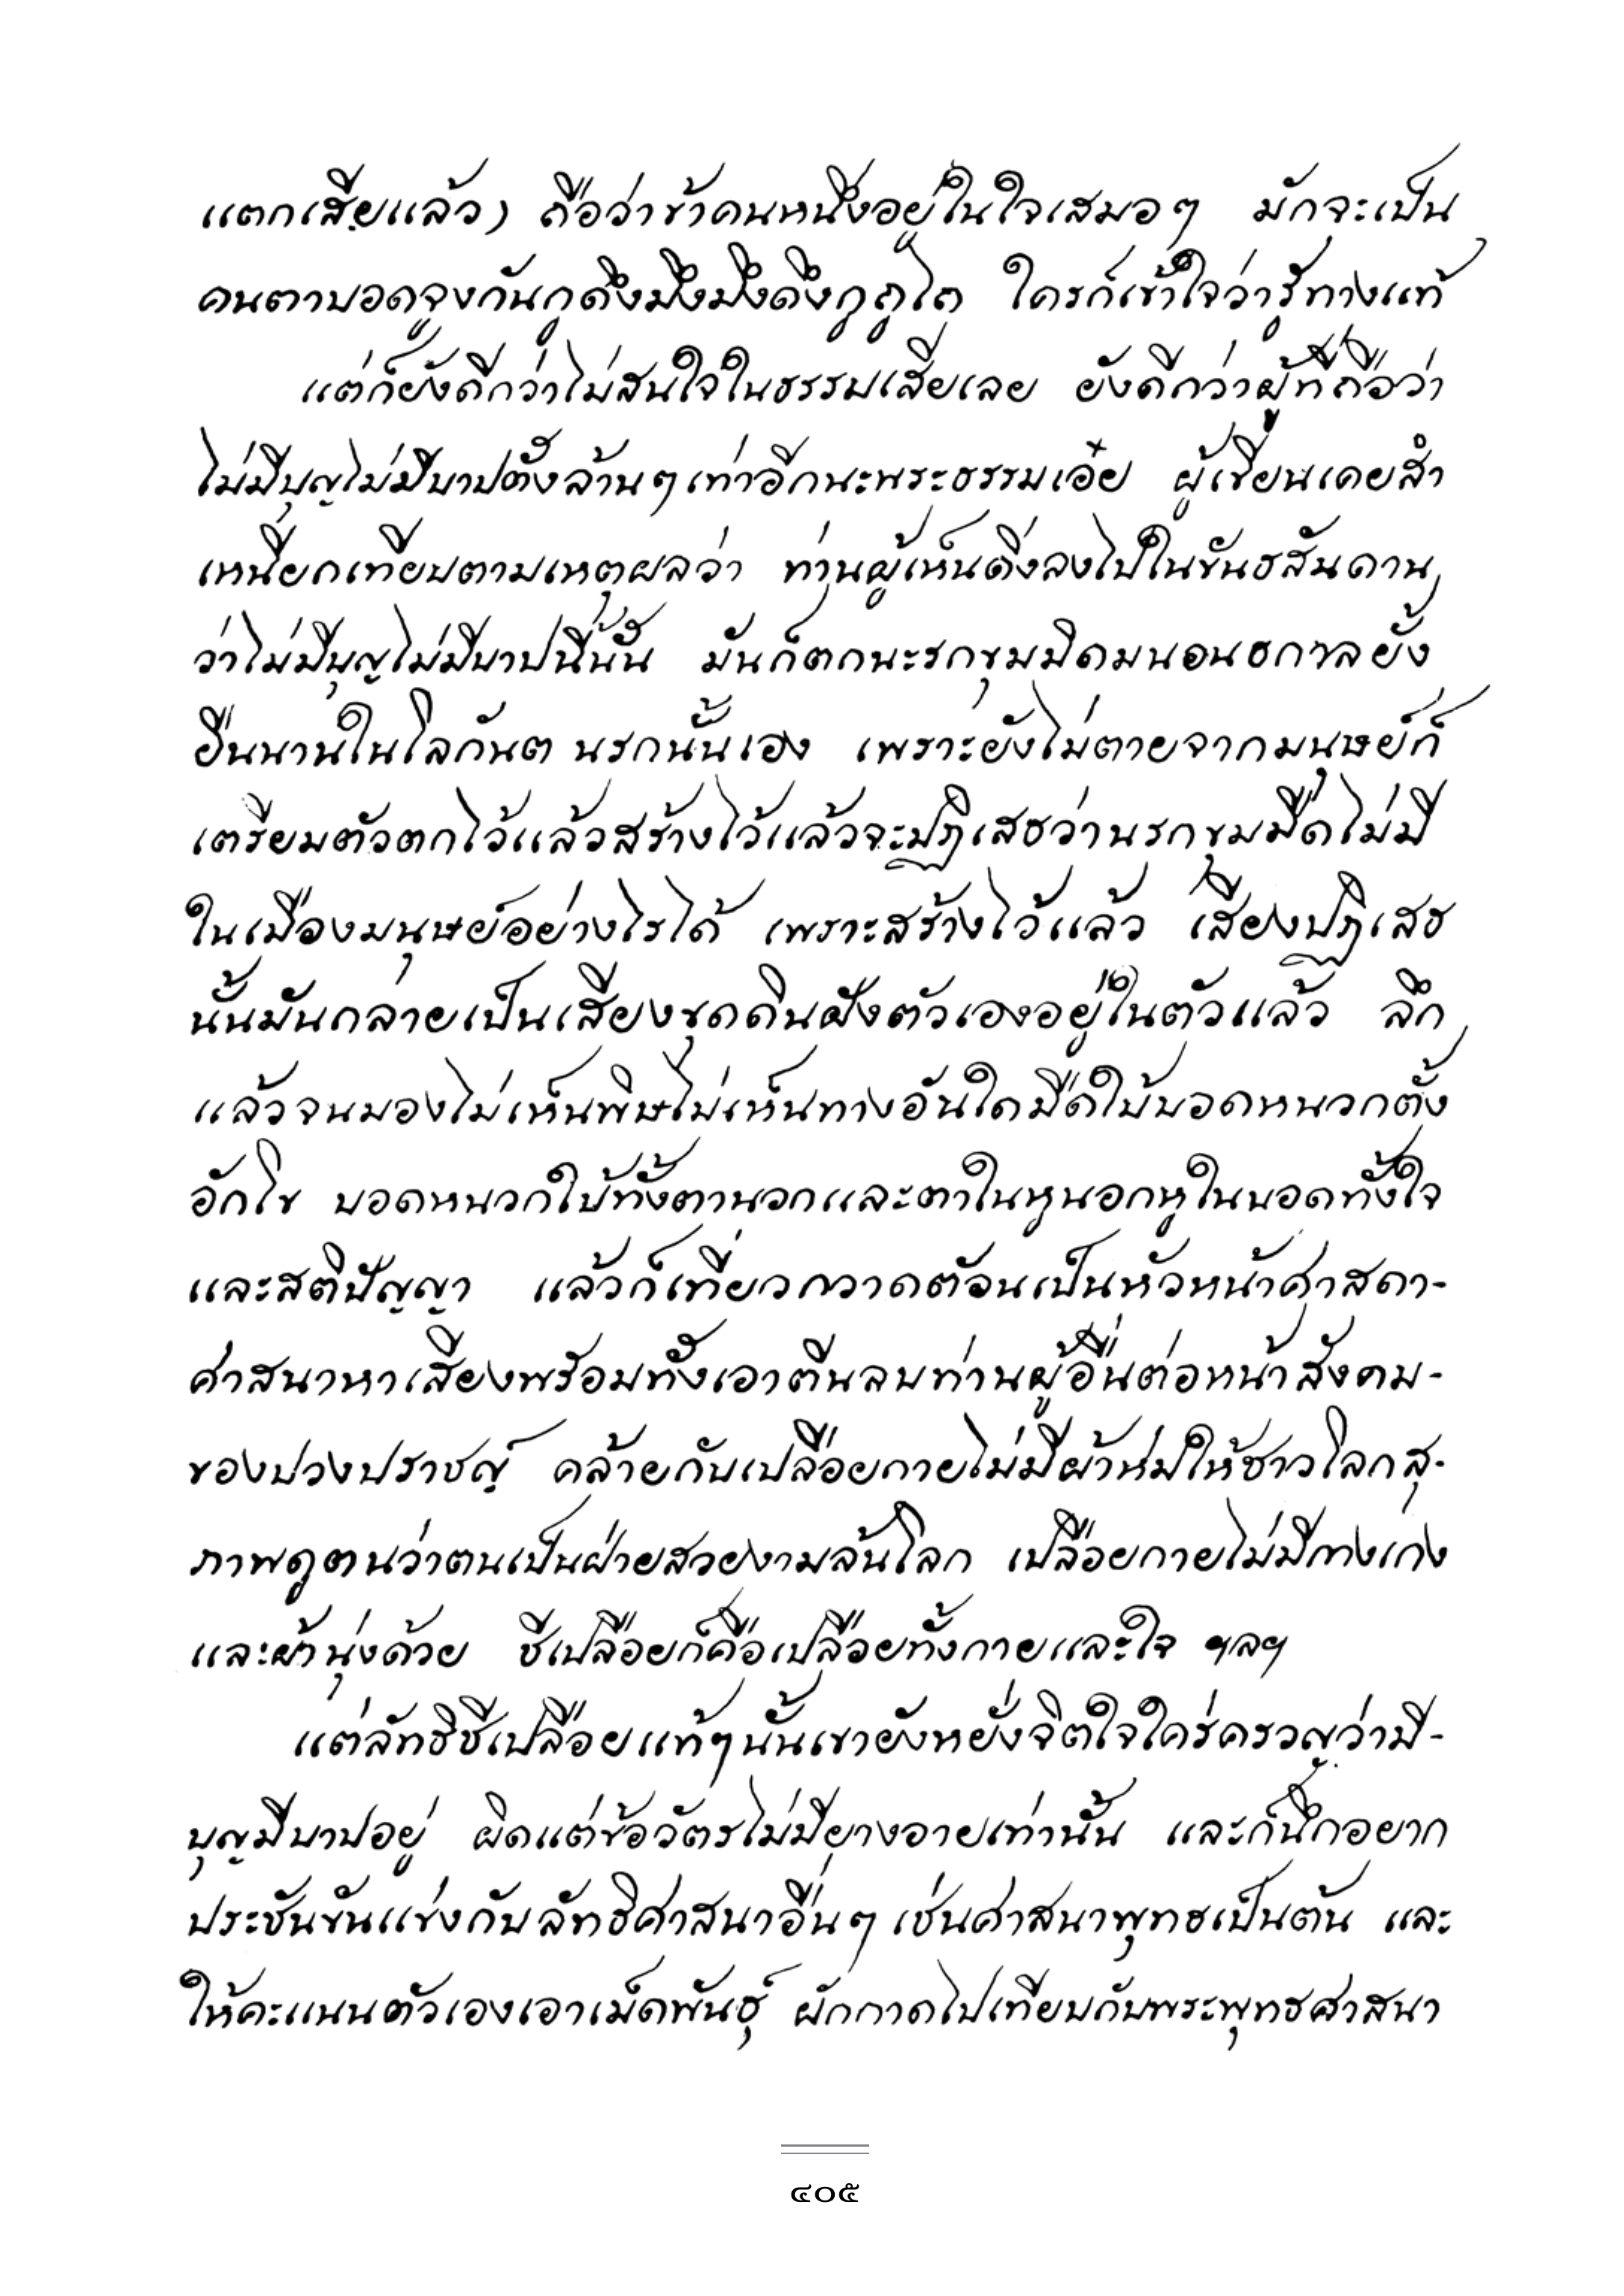 แตกเสียแล้ว) ถือว่าข้าคนหนึ่งอยู่ในใจเสมอๆ มักจะเป็น
คนตาบอดจูงกันกูดึงมึงมึงดึงกูถูไถ ใครก็เข้าใจว่ารู้ทางแท้
แต่ก็ยังดีกว่าไม่สนใจในธรรมเสียเลย ยังดีกว่าผู้ที่ถือว่า
ไม่มีบุญไม่มีบาปตั้งล้านๆเท่าอีกนะพระธรรมเอ๋ย ผู้เขียนเคยสำ
เหนียกเทียบตามเหตุผลว่า ท่านผู้เห็นดิ่งลงไปในขันธสันดาน
ว่าไม่มีบุญไม่มีบาปนี้นั้น มันก็ตกนะรกขุมมืดมนอนธกาลยั้ง
ยืนนานในโลกันต นรกนั้นเอง เพราะยังไม่ตายจากมนุษย์ก็
เตรียมตัวตกไว้แล้วสร้างไว้แล้วจะปฏิเสธว่านรกขุมมืดไม่มี
ในเมืองมนุษย์อย่างไรได้ เพราะสร้างไว้แล้ว เสียงปฏิเสธ
นั้นมันกลายเป็นเสียงขุดดินฝังตัวเองอยู่ในตัวแล้ว ลึก
แล้วจนมองไม่เห็นพิษไม่เห็นทางอันใดมืดใบ้บอดหนวกตั้ง
อักโข บอดหนวกใบ้ทั้งตานอกและตาในหูนอกหูในบอดทั้งใจ
และสติปัญญา แล้วก็เที่ยวกวาดต้อนเป็นหัวหน้าศาสดา-
ศาสนาหาเสียงพร้อมทั้งเอาตีนลบท่านผู้อื่นต่อหน้าสังคม-
ของปวงปราชญ์ คล้ายกับเปลือยกายไม่มีผ้าห่มให้ชาวโลกสุ-
ภาพดูตนว่าตนเป็นฝ่ายสวยงามล้นโลก เปลือยกายไม่มีกางเกง
และผ้านุ่งด้วย ชีเปลือยก็คือเปลือยทั้งกายและใจ ฯลฯ
แต่ลัทธิชีเปลือยแท้ๆนั้นเขายังหยั่งจิตใจใคร่ครวญว่ามี-
บุญมีบาปอยู่ ผิดแต่ข้อวัตรไม่มียางอายเท่านั้น และก็นึกอยาก
ประชันขันแข่งกับลัทธิศาสนาอื่นๆ เช่นศาสนาพุทธเป็นต้น และ
ให้คะแนนตัวเองเอาเม็ดพันธุ์ ผักกาดไปเทียบกับพระพุทธศาสนา
๔๐๕